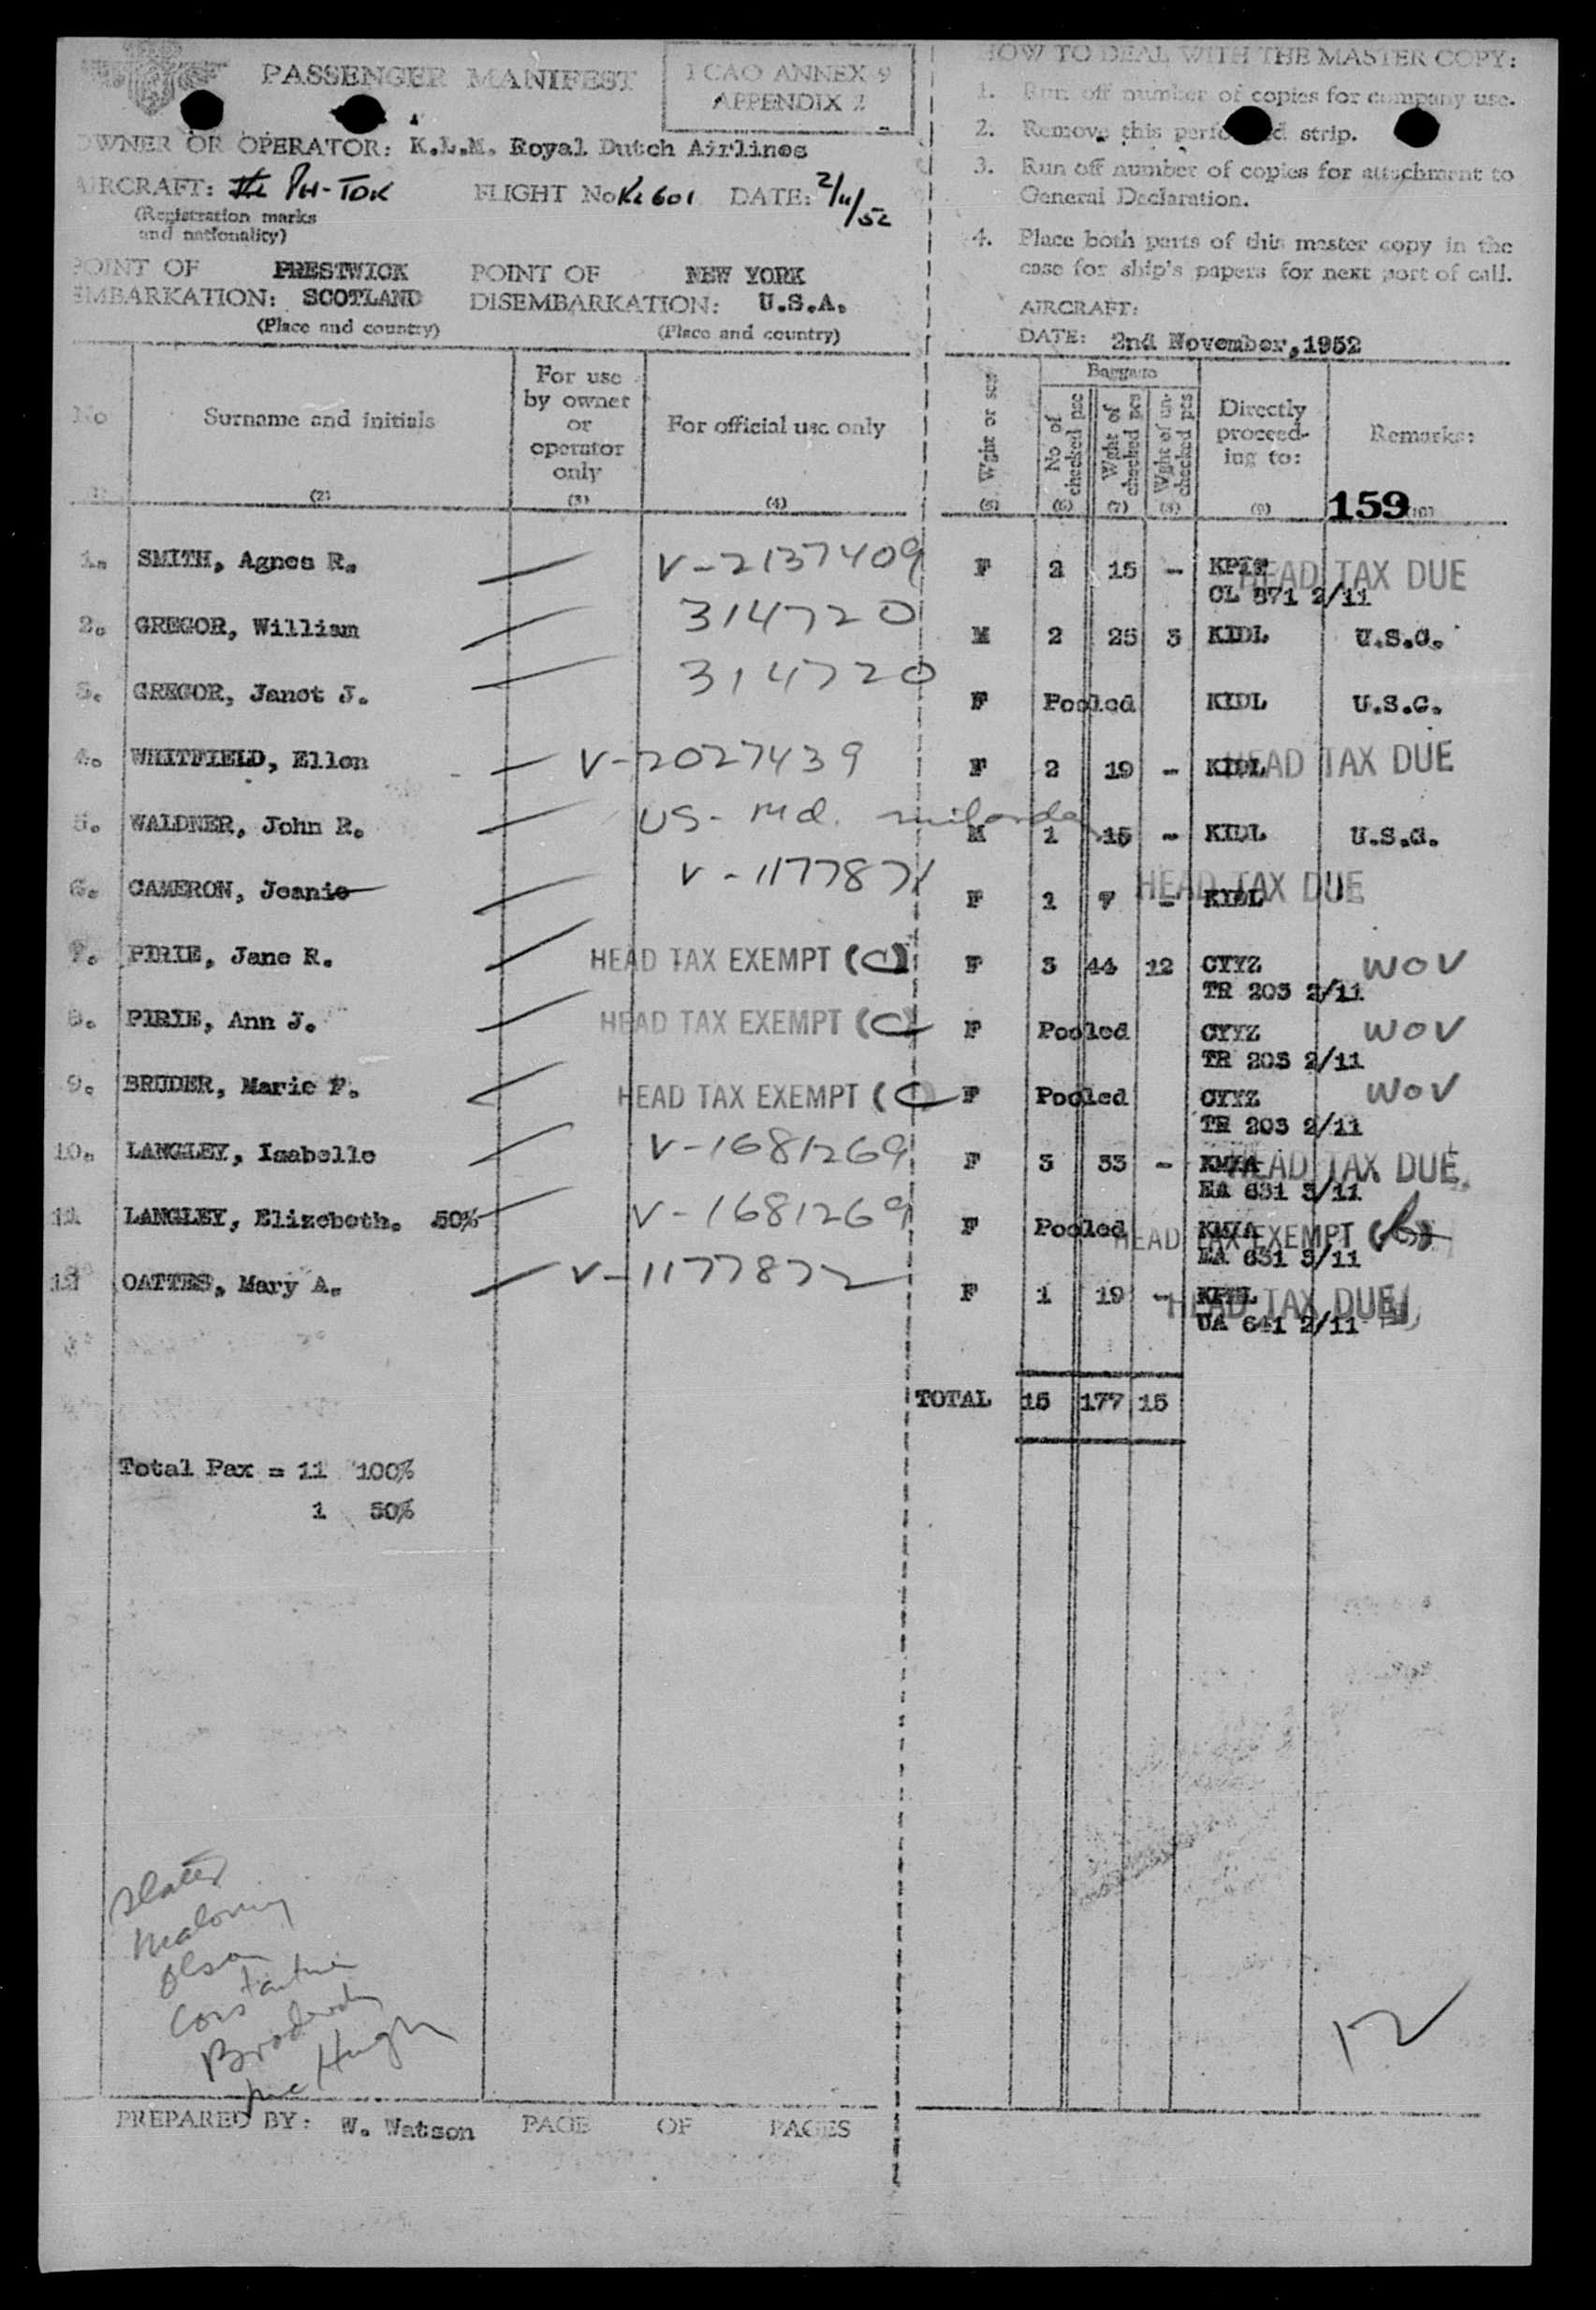 PASSENGER MANIFEST
ICAO ANNEX 9
APPENDIX 2
OWNER OR OPERATOR: K.L.M. Royal Dutch Airlines
AIRCRAFT: PH-TDK FLIGHT No KL 601 DATE: 2/11/52
(Registration marks
and nationality)
POINT OF PRESTWICK POINT OF NEW YORK
EMBARKATION: SCOTLAND DISEMBARKATION: U.S.A.
(Place and country) (Place and country)
HOW TO DEAL WITH THE MASTER COPY:
1. Run off number of copies for company use.
2. Remove this perforated strip.
3. Run off number of copies for attachment to
General Declaration.
4. Place both parts of this master copy in the
case for ship's papers for next port of call.
AIRCRAFT:
DATE: 2nd November, 1952
No
(1)
Surname and initials
(2)
For use
by owner
or
operator
only
(3)
For official use only
(4)
Wght or sex
(5)
Baggage
No of
checked pcs
(6)
Wght of
checked pcs
(7)
Wght of un-
checked pcs
(8)
Directly
proceed-
ing to:
(9)
Remarks:
159 (10)
1. SMITH, Agnes R. V-2137409 F 2 15 - HEAD TAX DUE
CL 571 2/11
2. GREGOR, William 314720 M 2 25 3 KIDL U.S.C.
3. GREGOR, Janet J. 314720 F Pooled KIDL U.S.C.
4. WHITFIELD, Ellen V-2027439 F 2 19 - KIDL HEAD TAX DUE
5. WALDNER, John R. US- M 1 15 - KIDL U.S.C.
6. CAMERON, Jeanie V-1177871 F 1 7 - KIDL HEAD TAX DUE
7. PIRIE, Jane R. HEAD TAX EXEMPT (C) F 3 44 12 CYYZ WOV
TR 203 2/11
8. PIRIE, Ann J. HEAD TAX EXEMPT (C) F Pooled CYYZ WOV
TR 203 2/11
9. BRUDER, Marie F. HEAD TAX EXEMPT (C) F Pooled CYYZ WOV
TR 203 2/11
10. LANGLEY, Isabelle V-1681269 F 3 33 - KMIA HEAD TAX DUE
EA 631 3/11
11 LANGLEY, Elizabeth. 50% V-1681269 F Pooled KMIA HEAD TAX EXEMPT
EA 631 3/11
12 OATTES, Mary A. V-1177872 F 1 19 - HEAD TAX DUE
UA 641 2/11
TOTAL 15 177 15
Total Pax = 11 100%
1 50%
Slater
Maloney
Olson
Constantine
Broderick
McHugh
12
PREPARED BY: W. Watson PAGE OF PAGES